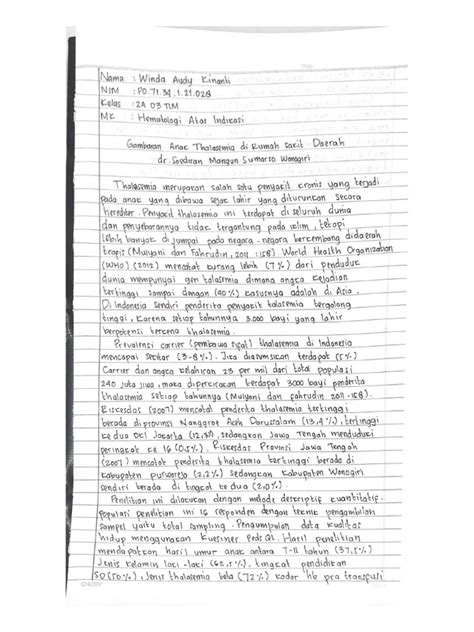 Nama : Winda Audy Kinanti
NIM : PO.71.34.1.21.028
Kelas : 2A 03 TLM
MK : Hematologi Atas Indikasi
Gambaran Anak Thalasemia di Rumah Sakit Daerah
dr. Soediran Mangun Sumarso Wonogiri
Thalasemia merupakan salah satu penyakit kronis yang terjadi
pada anak yang dibawa sejak lahir yang diturunkan secara
herediter. Penyakit thalasemia ini terdapat di seluruh dunia
dan penyebarannya tidak tergantung pada iklim, tetapi
lebih banyak di jumpai pada negara-negara berkembang didaerah
tropis (Mulyani dan Fahrudin, 2011 : 158) World Health Organization
(WHO) (2012) mencatat kurang lebih (7%) dari penduduk
dunia mempunyai gen talasemia dimana angka kejadian
tertinggi sampai dengan (40%) kasusnya adalah di Asia.
Di Indonesia sendiri penderita penyakit talasemia tergolong
tinggi, karena setiap tahunnya 3.000 bayi yang lahir
berpotensi terkena thalasemia.
Prevalensi carrier (pembawa sifat) thalasemia di Indonesia
mencapai sekitar (3-8%). Jika diasumsikan terdapat (5%)
Carrier dan angka kelahiran 23 per mil dari total populasi
240 juta jiwa, maka diperkirakan terdapat 3000 bayi penderita
thalasemia setiap tahunnya (Mulyani dan fahrudin 2011 : 158).
Riskesdas (2007) mencatat penderita thalasemia tertinggi
berada diprovinsi Nanggroe Aceh Darussalam (13,4%), tertinggi
ke dua DKI Jakarta (12,3%), sedangkan Jawa Tengah menduduki
peringkat ke 16 (0,5%). Riskesdas Provinsi Jawa Tengah
(2007) mencatat penderita thalasemia tertinggi berada di
kabupaten purworejo (2,2%) sedangkan kabupaten Wonogiri
sendiri berada di tingkat ke dua (2,0%).
Penelitian ini dilakukan dengan metode descriptif kuantitatif.
Populasi penelitian ini 16 responden dengan teknik pengambilan
sampel yaitu total sampling. Pengumpulan data kualitas
hidup menggunakan Kuesiner Peds QL. Hasil penelitian
mendapatkan hasil umur anak antara 7-11 tahun (37,5%)
Jenis kelamin laki-laki (62,5%), tingkat pendidikan
SD (50%), Jenis thalasemia beta (72%) kadar hb pra transfusi